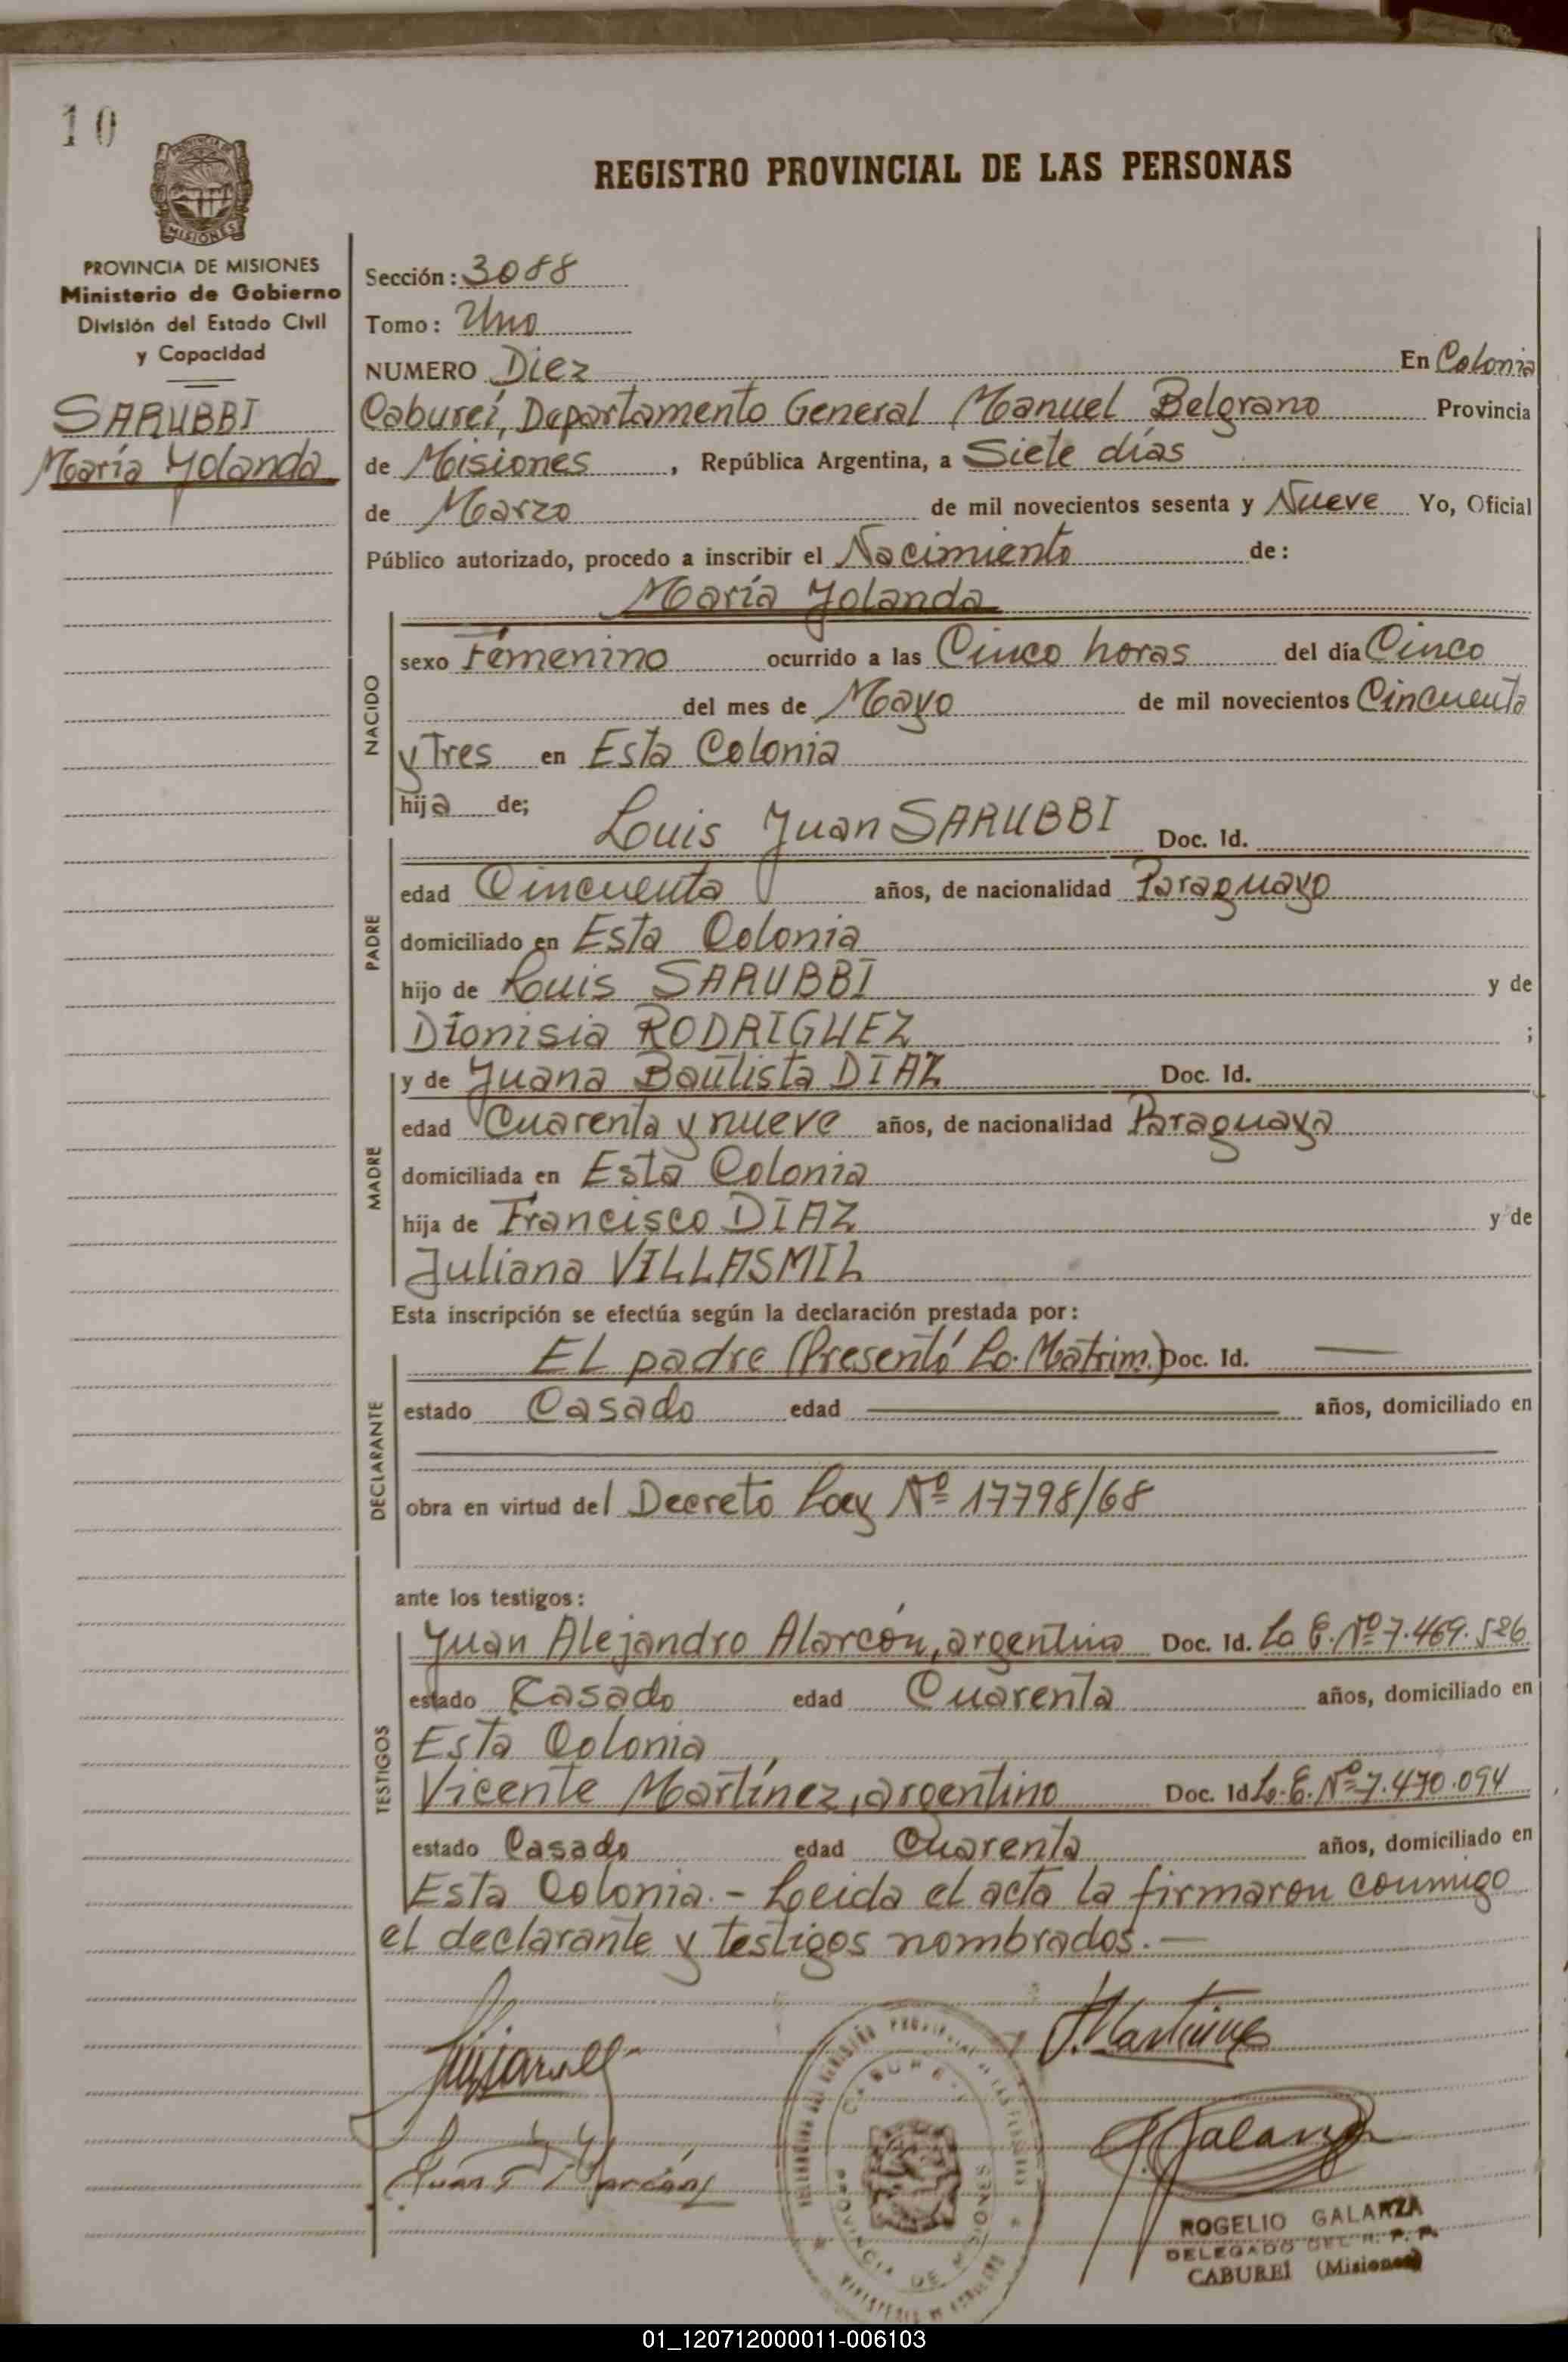 10
MISIONES
PROVINCIA DE MISIONES
Ministerio de Gobierno
División del Estado Civil
y Capacidad
SARUBBI
María Yolanda
REGISTRO PROVINCIAL DE LAS PERSONAS
Sección: 3088
Tomo: Uno
NUMERO Diez En Colonia
Cabureí, Departamento General Manuel Belgrano Provincia
de Misiones, República Argentina, a Siete días
de Marzo de mil novecientos sesenta y Nueve Yo, Oficial
Público autorizado, procedo a inscribir el Nacimiento de:
María Yolanda
NACIDO
sexo Femenino ocurrido a las Cinco horas del día Cinco
del mes de Mayo de mil novecientos Cincuenta
y Tres en Esta Colonia
hija de;
Luis Juan SARUBBI Doc. Id.
PADRE
edad Cincuenta años, de nacionalidad Paraguayo
domiciliado en Esta Colonia
hijo de Luis SARUBBI y de
Dionisia RODRIGUEZ ;
y de Juana Bautista DIAZ Doc. Id.
MADRE
edad Cuarenta y nueve años, de nacionalidad Paraguaya
domiciliada en Esta Colonia
hija de Francisco DIAZ y de
Juliana VILLASMIL
Esta inscripción se efectúa según la declaración prestada por:
El padre (Presentó L. Matrim.) Doc. Id. —
DECLARANTE
estado Casado edad — años, domiciliado en
obra en virtud del Decreto Ley Nº 17798/68
ante los testigos:
Juan Alejandro Alarcón, argentino Doc. Id. L.E. Nº 7.469.526
TESTIGOS
estado Casado edad Cuarenta años, domiciliado en
Esta Colonia
Vicente Martínez, argentino Doc. Id L.E. Nº 7.470.094
estado Casado edad Cuarenta años, domiciliado en
Esta Colonia.- Leida el acta la firmaron conmigo
el declarante y testigos nombrados.—
V. Martinez
Galarza
CABUREI
PROVINCIA DE MISIONES
ROGELIO GALARZA
DELEGADO DEL R. P. P.
CABUREI (Misiones)
01_120712000011-006103